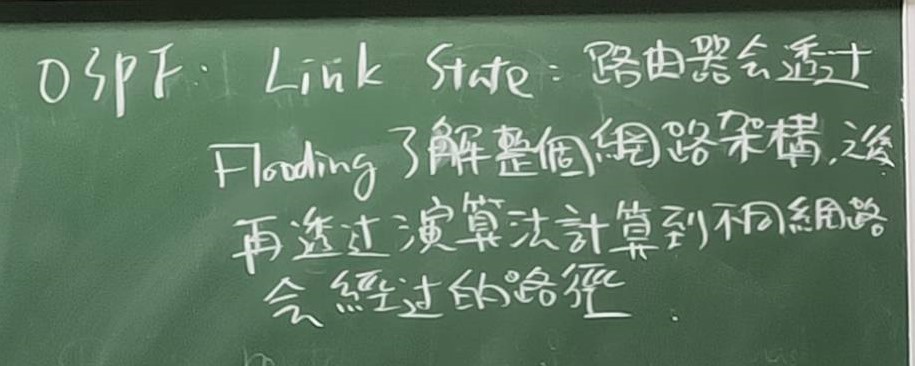 OSPF: Link State: 路由器会透过
Flooding 了解整個網路架構,之後
再透过演算法計算到不同網路
会經过的路徑.